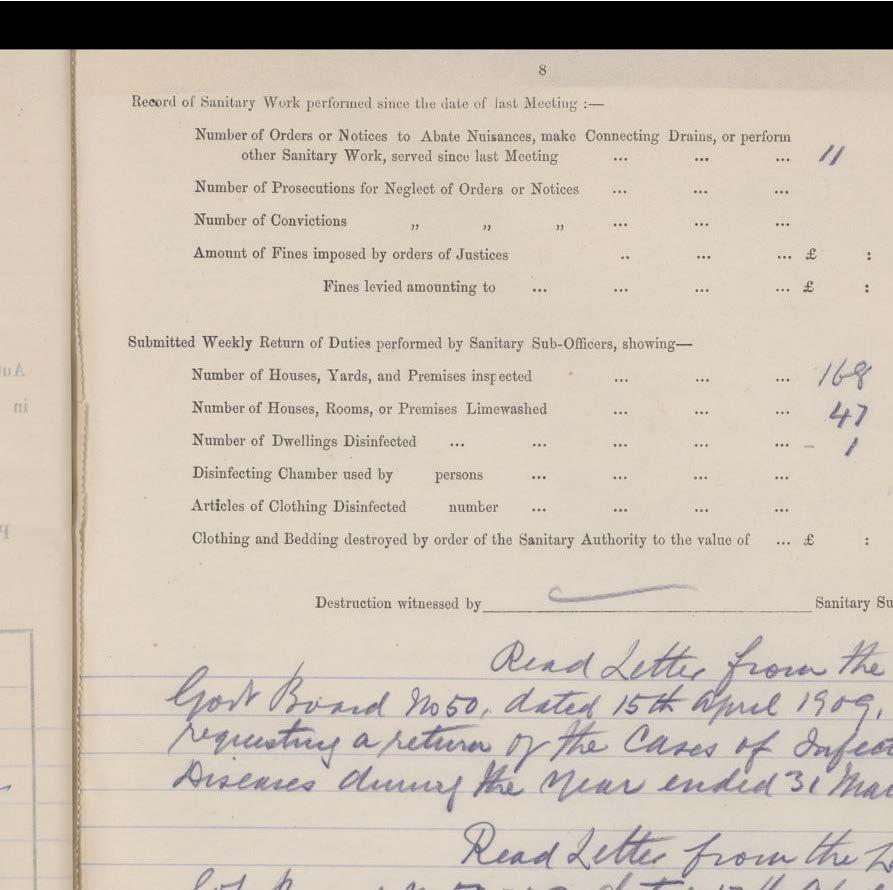 8
Record of Sanitary Work performed since the date of last Meeting :—
Number of Orders or Notices to Abate Nuisances, make Connecting Drains, or perform
other Sanitary Work, served since last Meeting ... ... ... 11
Number of Prosecutions for Neglect of Orders or Notices ... ... ...
Number of Convictions „ „ „ ... ... ...
Amount of Fines imposed by orders of Justices .. ... ... £ :
Fines levied amounting to ... ... ... ... £ :
Submitted Weekly Return of Duties performed by Sanitary Sub-Officers, showing—
Number of Houses, Yards, and Premises inspected ... ... ... 168
Number of Houses, Rooms, or Premises Limewashed ... ... ... 47
Number of Dwellings Disinfected ... ... ... ... ... – 1
Disinfecting Chamber used by persons ... ... ... ...
Articles of Clothing Disinfected number ... ... ... ...
Clothing and Bedding destroyed by order of the Sanitary Authority to the value of ... £ :
Destruction witnessed by Sanitary Su
Read Letter from the
Govt Board No 50, dated 15th April 1909,
requesting a return of the Cases of Infect
Diseases during the Year ended 31 Mar
Read Letter from the L